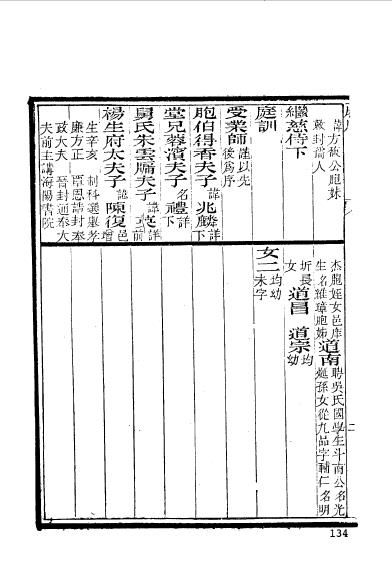 諱方淑公胞妹
敕封孺人
繼慈侍下
庭訓
受業師 謹以先後爲序
胞伯得香夫子 諱兆麟詳下
堂兄蓉濱夫子 名禮詳下
舅氏朱雲牖夫子 諱英詳前
楊生府太夫子 諱陳復邑增
生辛亥 制科選舉孝
廉方正 覃恩誥封奉
政大夫 晉封通奉大
夫前主講海陽書院
杰胞姪女邑庠
生名維璋胞姊 道南 聘吳氏國學生斗南公名光
孫女從九品字輔仁名明
圻長女 道昌 道宗 均幼
女二 均幼未字
二
134